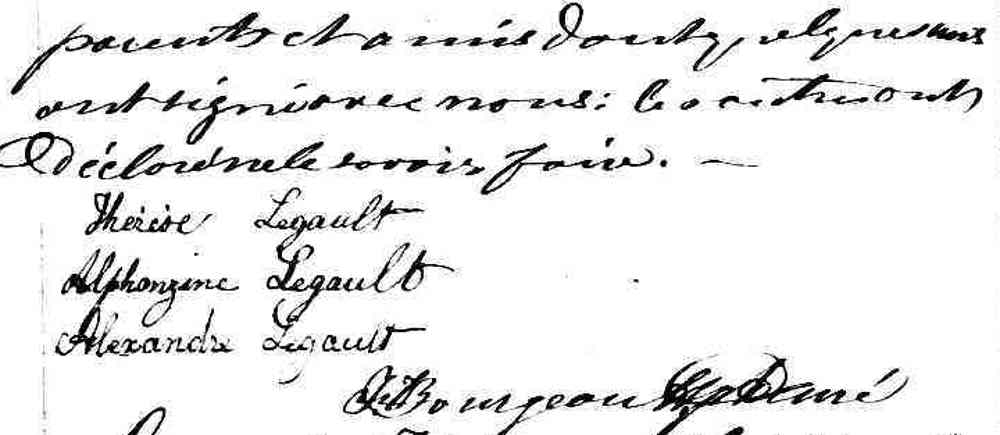 parents et amis dont quelques uns
ont signé avec nous: les autres ont
déclaré ne le savoir faire. —
Thérèse Legault
Alphonzine Legault
Alexandre Legault
Bourgeau Curé